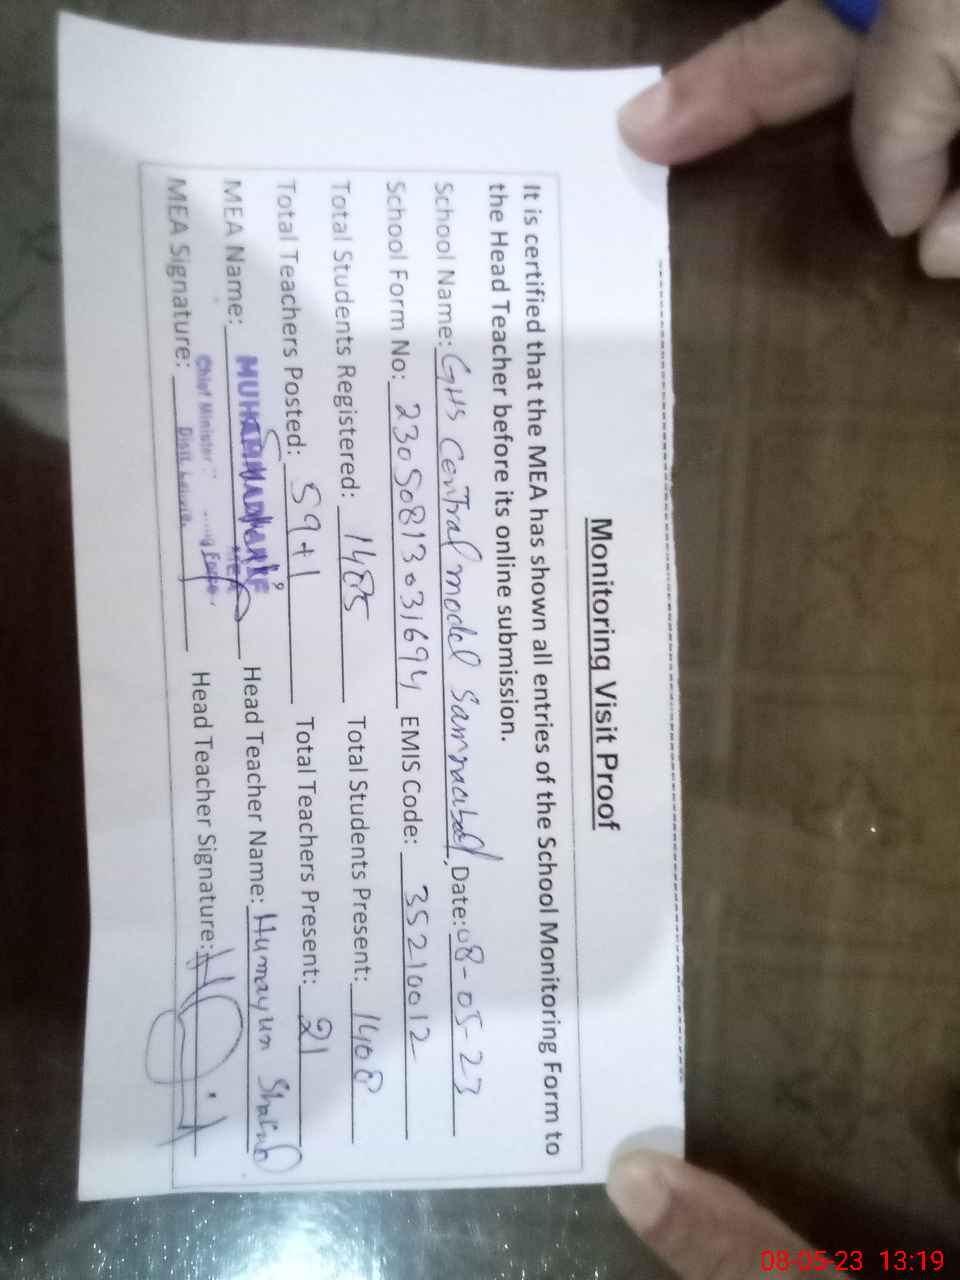 Monitoring Visit Proof
It is certified that the MEA has shown all entries of the School Monitoring Form to
the Head Teacher before its online submission.
School Name: GHS Central model Samnabad, Date: 08-05-23
School Form No: 23050813031694 EMIS Code: 35210012
Total Students Registered: 1485 Total Students Present: 1408
Total Teachers Posted: 59+1 Total Teachers Present: 21
MEA Name: MUHAMMAD Head Teacher Name: Humayun
MEA
Chief Minister
MEA Signature: Head Teacher Signature:
08-05-23 13:19